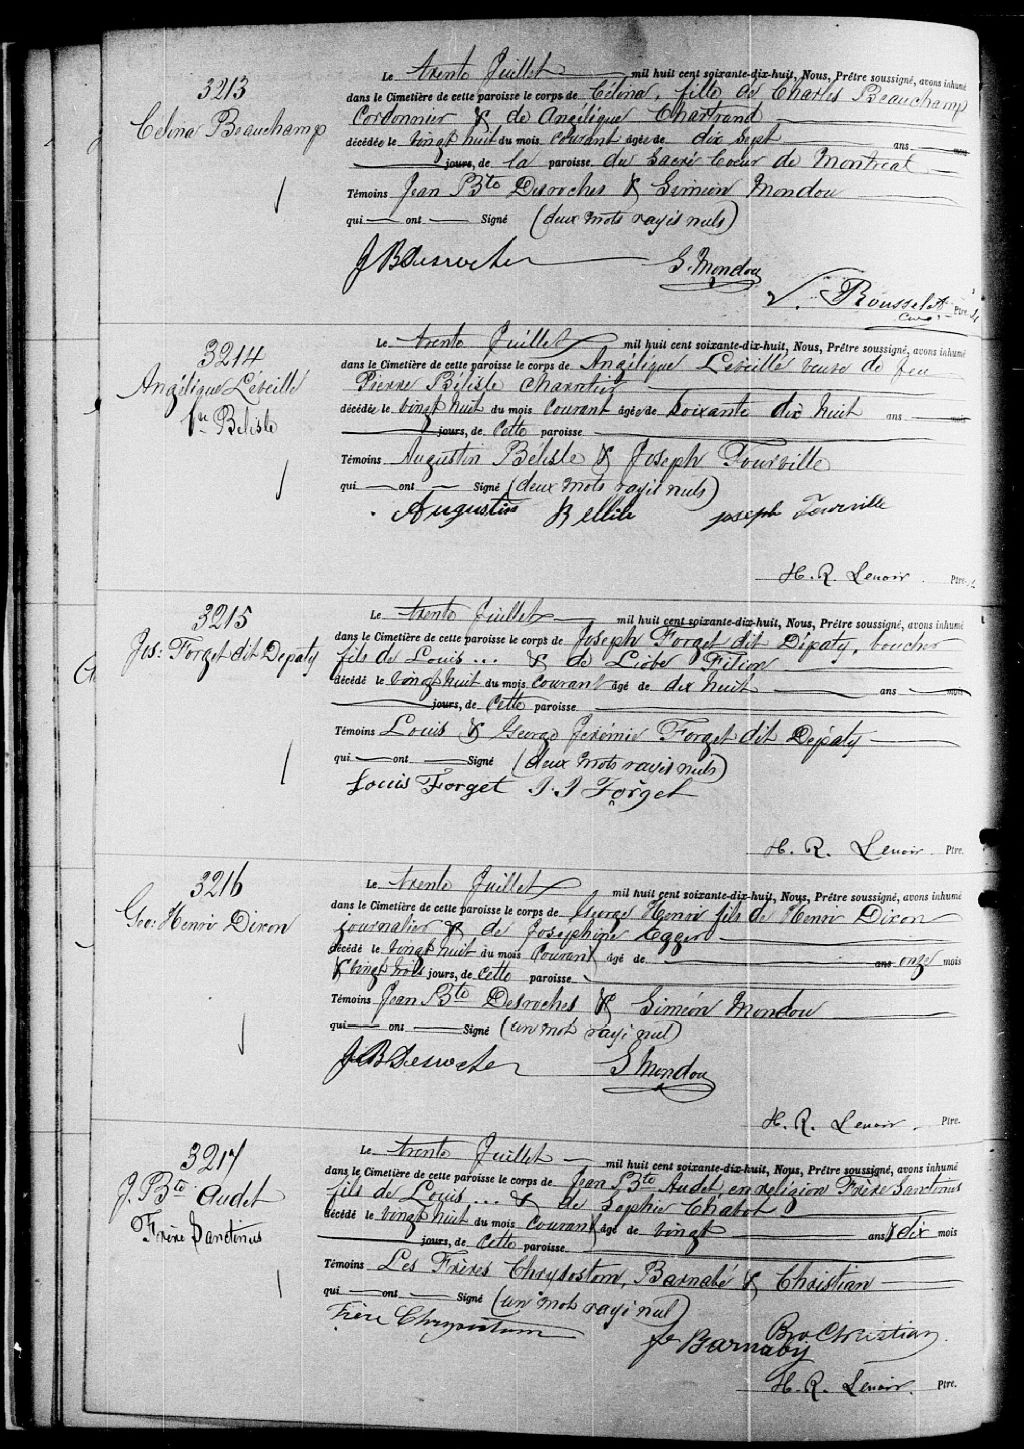 3213
Célina Beauchamp
Le trente Juillet mil huit cent soixante-dix-huit, Nous, Prêtre soussigné, avons inhumé
dans le Cimetière de cette paroisse le corps de Célina, fille de Charles Beauchamp
Cordonnier & de Angélique Chartrand
décédée le vingt huit du mois courant agée de dix sept ans mois
jours, de la paroisse du Sacré Coeur de Montréal
Témoins Jean Bte Desroches & Siméon Mondou
qui ont Signé (deux mots rayés nuls)
J B Desroches S. Mondou
V. Rousselot Ptre
curé
3214
Angélique Léveillé
fu Bélisle
Le trente Juillet mil huit cent soixante-dix-huit, Nous, Prêtre soussigné, avons inhumé
dans le Cimetière de cette paroisse le corps de Angélique Léveillé veuve de feu
Pierre Bélisle charretier
décédée le vingt huit du mois courant agée de soixante dix huit ans mois
jours, de cette paroisse
Témoins Augustin Bélisle & Joseph Tourville
qui ont Signé (deux mots rayés nuls)
Augustin Bellile joseph Tourville
H. R. Lenoir Ptre.
3215
Jos: Forget dit Depaty
Le trente Juillet mil huit cent soixante-dix-huit, Nous, Prêtre soussigné, avons inhumé
dans le Cimetière de cette paroisse le corps de Joseph Forget dit Dépaty, boucher
fils de Louis ... & de Liobe Filion
décédé le vingt huit du mois courant agé de dix huit ans mois
jours, de cette paroisse
Témoins Louis & George Jérémie Forget dit Dépaty
qui ont Signé (deux mots rayés nuls)
Louis Forget J. J Forget
H. R. Lenoir Ptre.
3216
Geo: Henri Dixon
Le trente Juillet mil huit cent soixante-dix-huit, Nous, Prêtre soussigné, avons inhumé
dans le Cimetière de cette paroisse le corps de George Henri fils de Henri Dixon
journalier & de Josephine Eggers
décédé le vingt huit du mois courant agé de ans onze mois
& vingt trois jours, de cette paroisse
Témoins Jean Bte Desroches & Siméon Mondou
qui ont Signé (un mot rayé nul)
J B Desroches S Mondou
H. R. Lenoir. Ptre.
3217
J. Bte Audet
Frère Sanctinus
Le trente Juillet mil huit cent soixante-dix-huit, Nous, Prêtre soussigné, avons inhumé
dans le Cimetière de cette paroisse le corps de Jean Bte Audet, en religion Frère Sanctinus
fils de Louis ... & de Sophie Chabot
décédé le vingt huit du mois courant agé de vingt ans & dix mois
jours, de cette paroisse
Témoins Les Frères Chrysostom, Barnabé & Christian
qui ont Signé (un mot rayé nul)
Frère Chrysostum Bro Christian
fr Barnaby
H. R. Lenoir. Ptre.